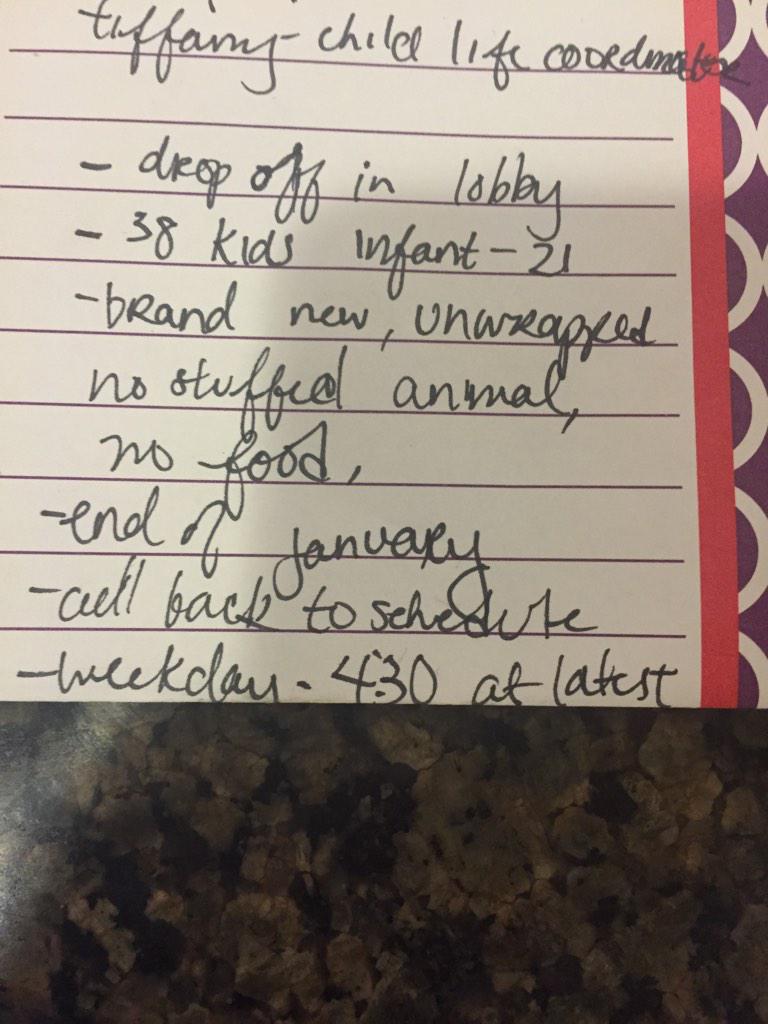 tiffany - child life coordinator
- drop off in lobby
- 38 kids infant - 21
- brand new, unwrapped
no stuffed animal,
no food,
- end of january
- call back to schedule
- weekday - 4:30 at latest